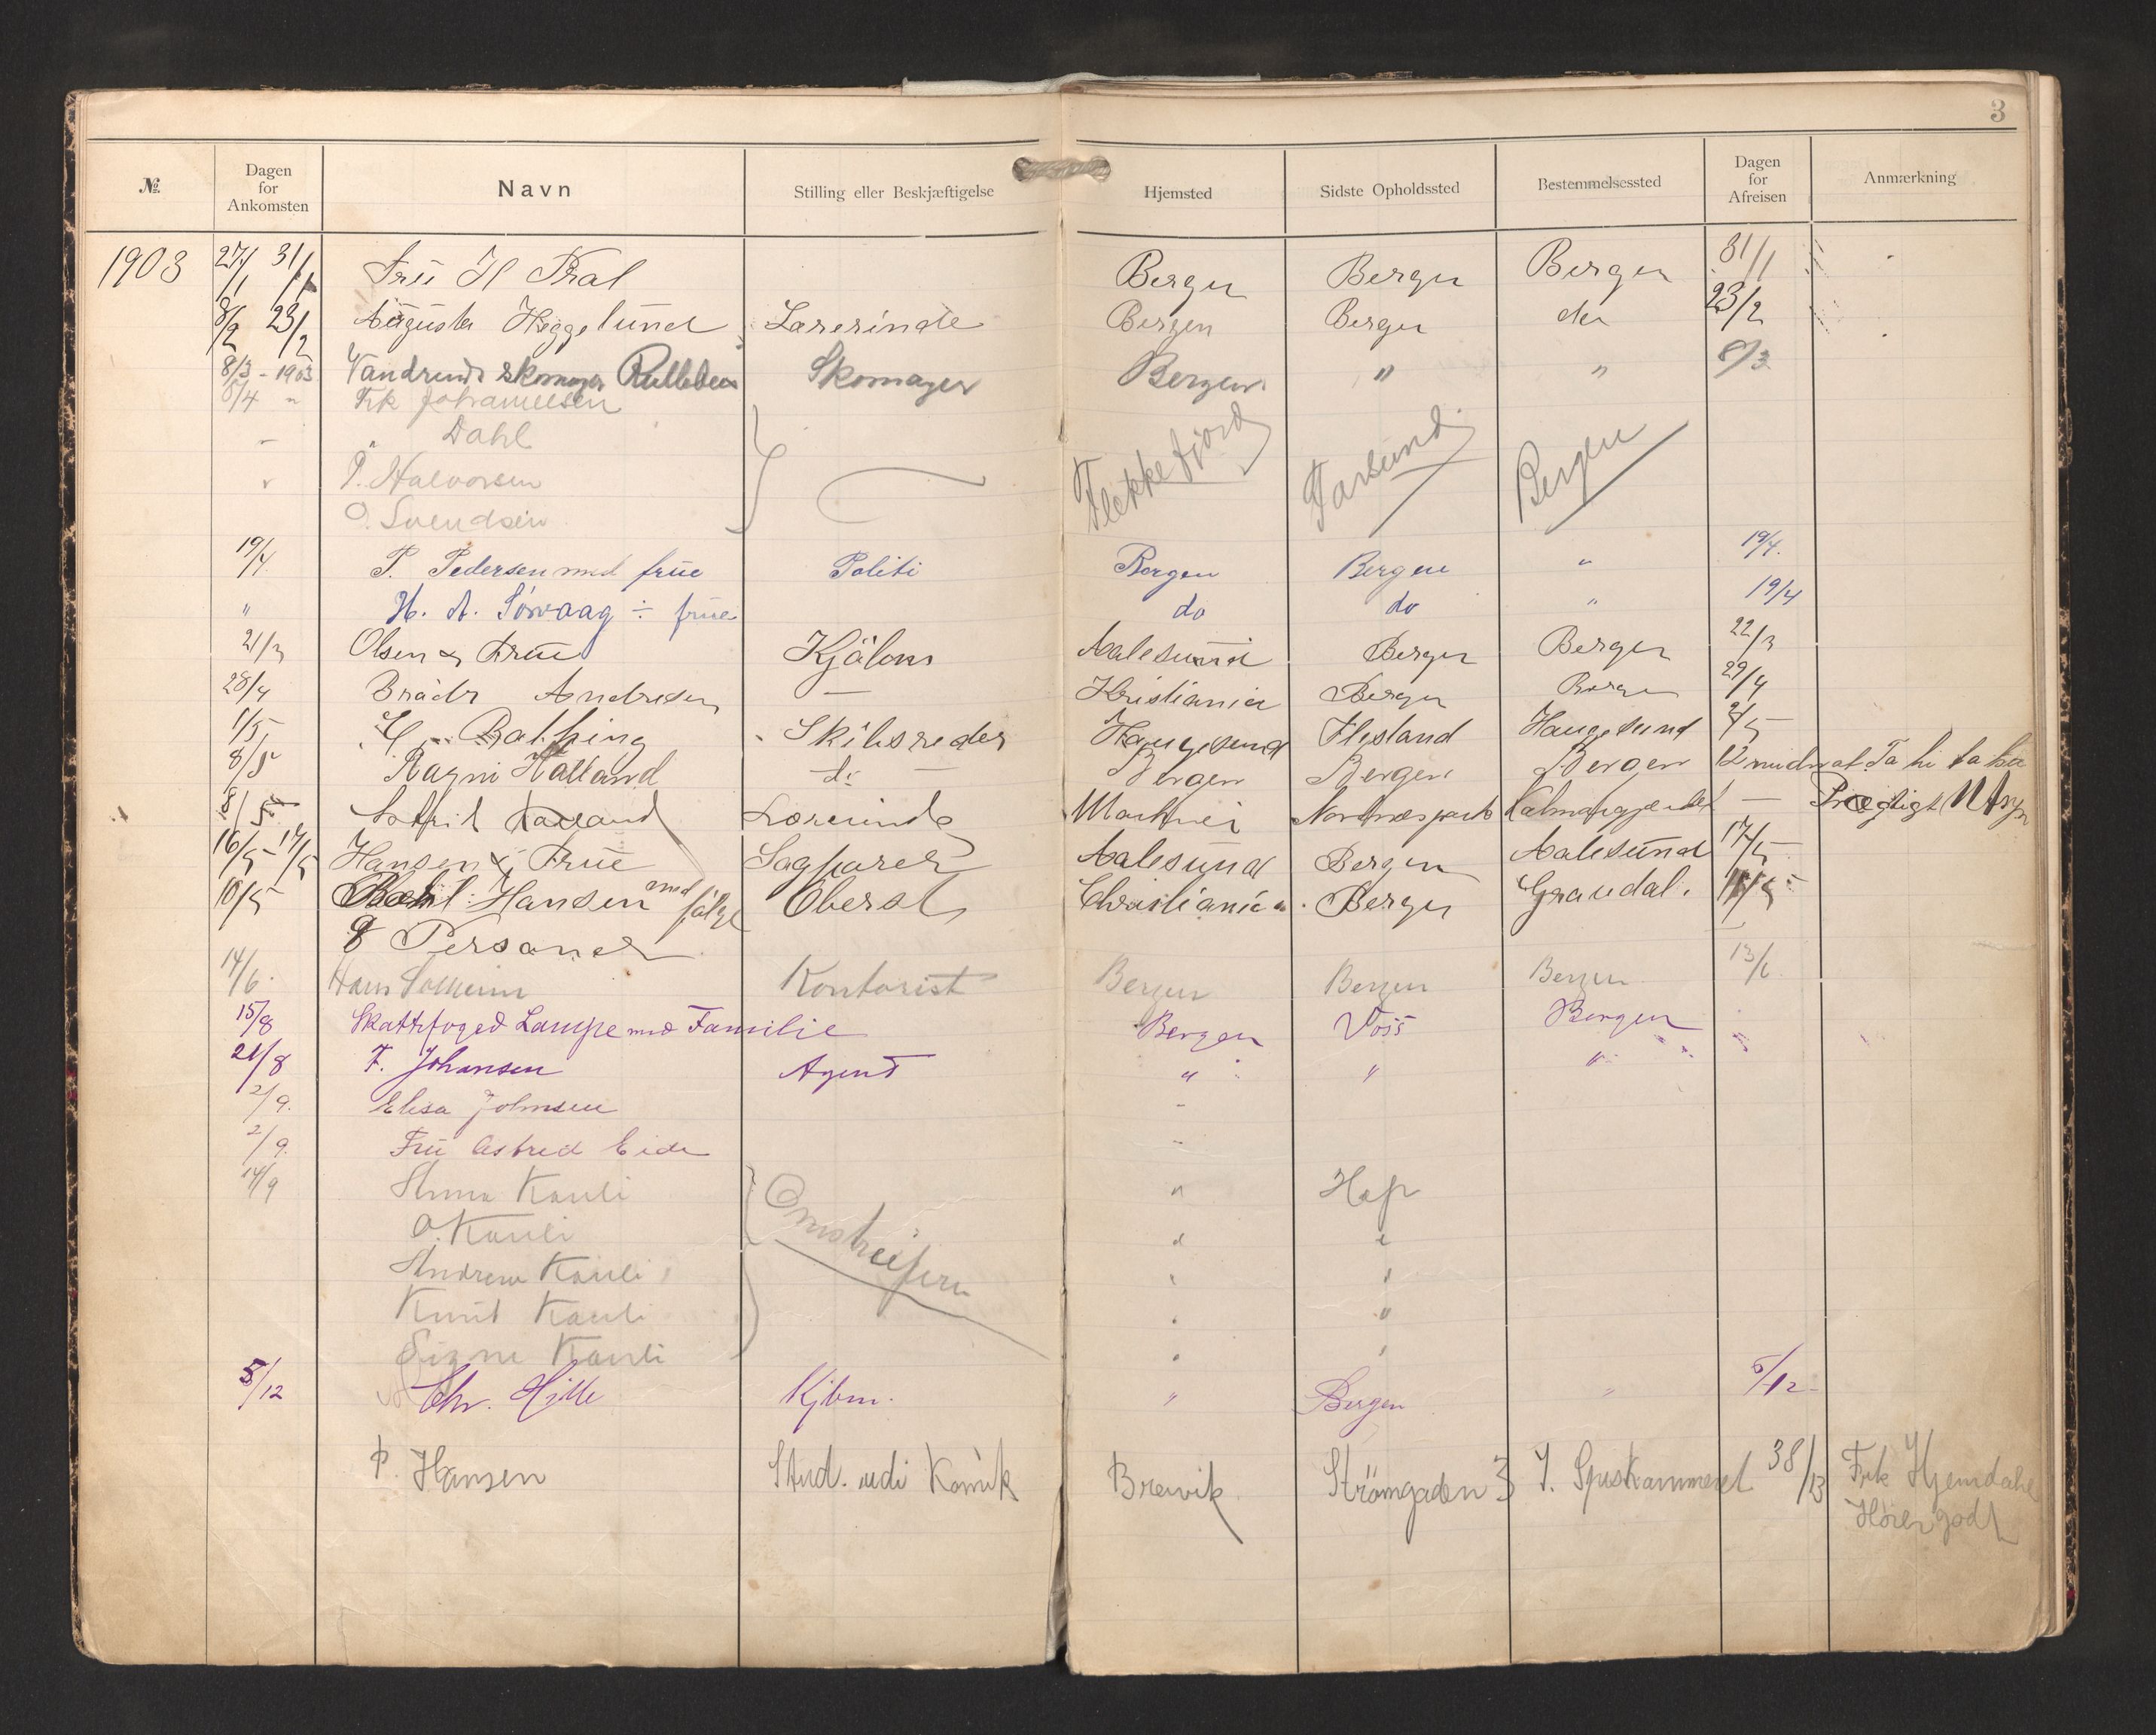 3
№ Dagen for Ankomsten Navn Stilling eller Beskjæftigelse Hjemsted Sidste Opholdssted Bestemmelsessted Dagen for Afreisen Anmærkning
1903 27/1 31/1 Frü H Kral Bergen Bergen Bergen 31/1
8/2 23/2 Augusta Heggelund Larerinde Bergen Bergen 23/2
8/3 - 1903 Vandrende Skomager Skomager Bergen " " 8/3
5/4 " Frk Johannessen
- " Dahl
" P. Halvorsen Flekkefjord Farsund Bergen
O. Svendsen
19/4 P. Pedersen med früe Politi Bergen Bergen " 19/4.
" H. A. Sørvaag ÷ früe do do " 19/4
21/3 Olsen & Früe Aalesund Bergen Bergen 22/3
28/4 Brødr Andresen — Kristiania Bergen Bergen 29/4
1/5 Skibsreder Haugesund Flesland Haugesund 2/5
8/5 Ragni Halland do — Bergen Bergen Bergen 12
8/5 Halland Lærerinde —
16/5 - 17/5 Hansen & Früe Aalesund Bergen Aalesund 17/5
10/5 Hansen med følge Oberst Christiania Bergen
8 Personer
14/6. Hans Solheim Kontorist Bergen Bergen Bergen 13/6
15/8 Skattefoged Lampe med Familie Bergen Voss Bergen
21/8 F. Johansen Agent " " "
2/9. Elisa Johnsen -
2/9. Frü Astred Eide -
14/9 Anna Kauli Omstreifere " Hop
O. Kauli " "
Andrew Kauli " "
Knut Kauli " "
Signe Kauli " "
5/12 Chr. Hille Kjbm. " Bergen " 5/12
P. Hansen Stud. Komik Brevik Strömgaden 3 I. Spiskammeret 38/13 Frk Hjemdahl
Hörer godt